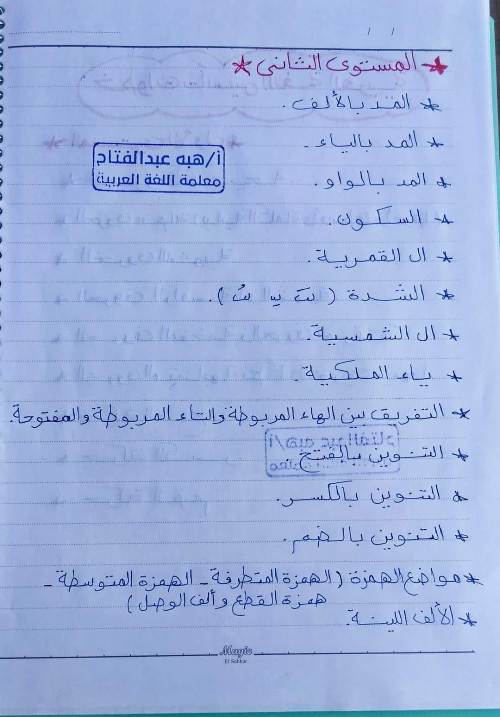 / /
* المستوى الثانى *
* المد بالألف.
* المد بالياء.
أ/هبه عبدالفتاح
معلمة اللغة العربية
* المد بالواو.
* السكون.
* ال القمرية.
* الشدة ( ).
* ال الشمسية.
* ياء الملكية.
* التفريق بين الهاء المربوطة والتاء المربوطة والمفتوحة.
* التنوين بالفتح
* التنوين بالكسر.
* التنوين بالضم.
* مواضع الهمزة ( الهمزة المتطرفة - الهمزة المتوسطة -
همزة القطع وألف الوصل )
* الألف اللينة.
Magic
El Sahhar